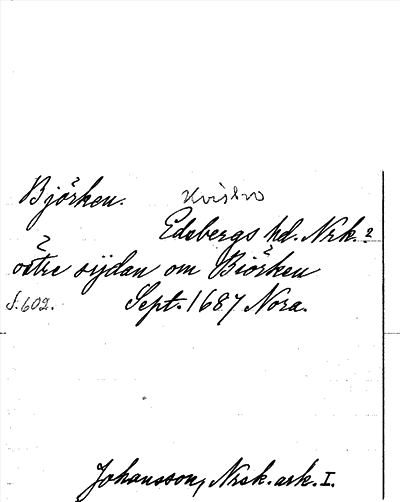 Björken. Kvisbro
Edsbergs hd. Nrk. 2
östre sijdan om Biörken
s. 602. Sept. 1687 Nora.
Johansson, Nrsk. ark. I.